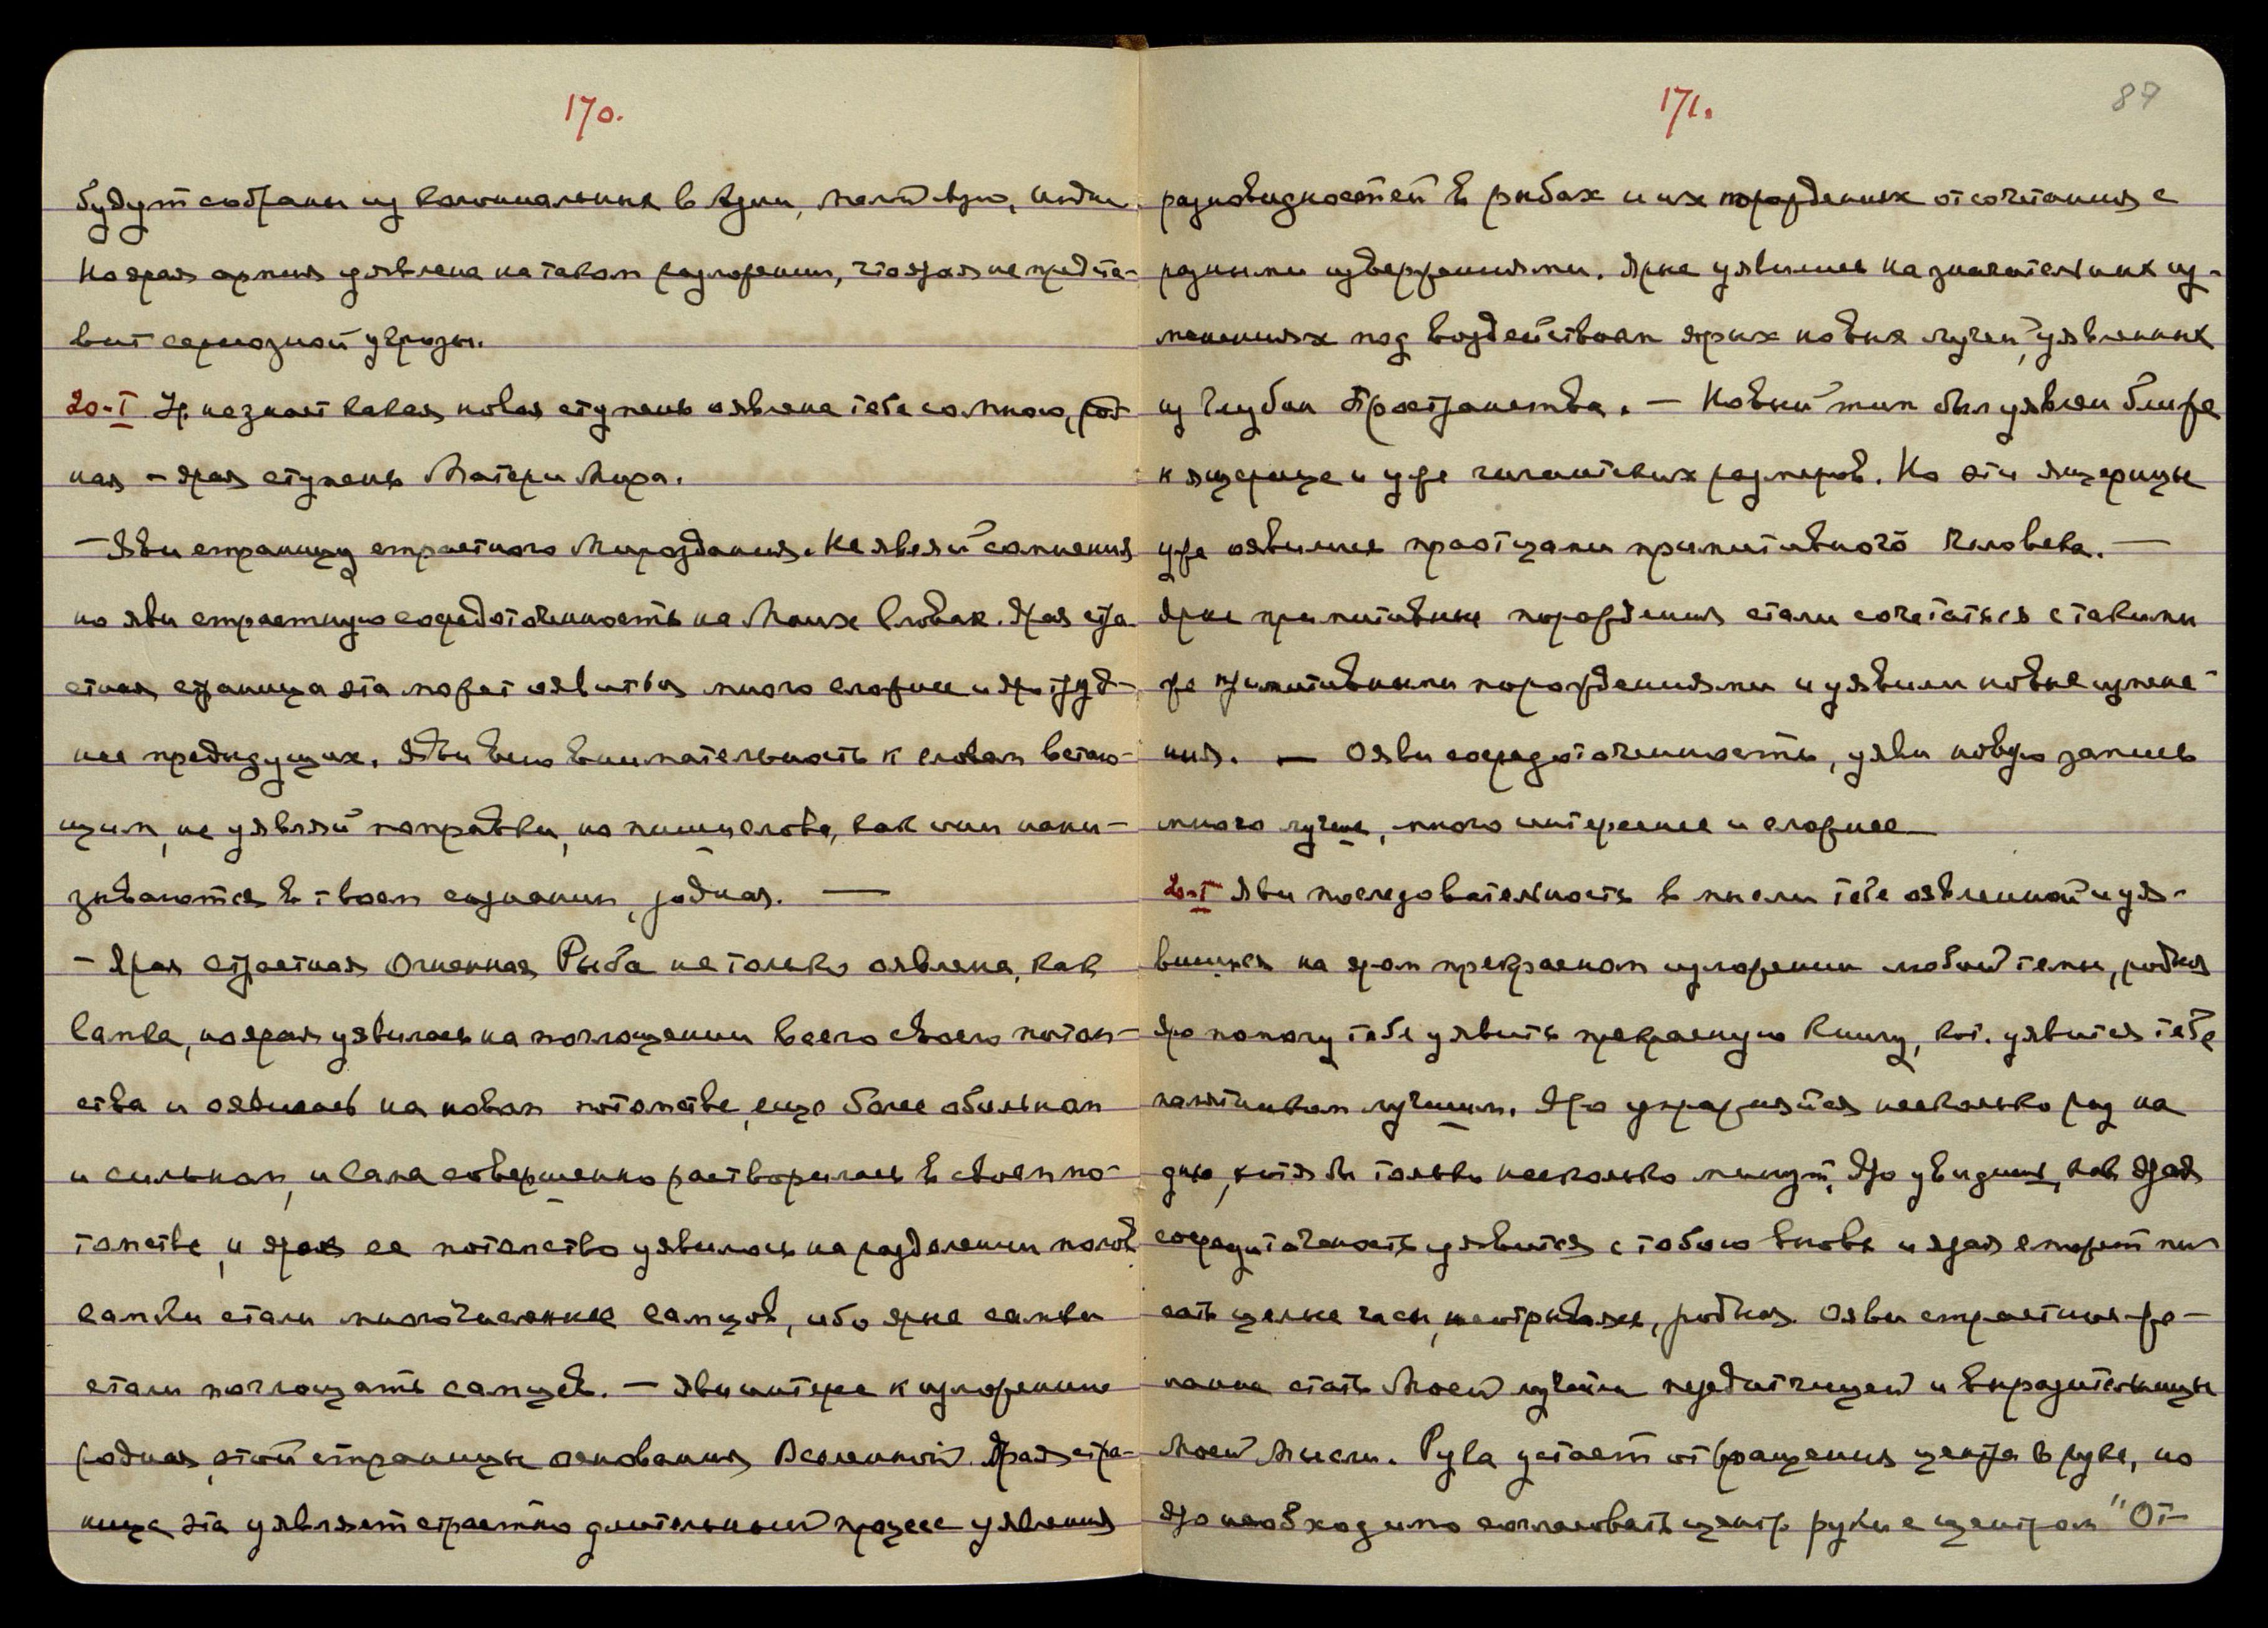 170.
будут собраны из колониальных в Азии, Малой Азию, Индии
Но ярая армия уявлена на таком разложении, что ярая не предста-
вит серьезной угрозы.
20-I Ур. не знает какая новая ступень оявлена тебе со Мною, род-
ная – ярая ступень Матери Мира.
– Яви страницу страстного Мироздания. Не являй сомнения
но яви страстную сосредоточенность на Моих словах. Ярая стра-
стная страница эта может оявиться много сложнее и яро труд-
нее предидущих. Яви всю внимательность к словам встаю-
щим, не уявляй поправки, но пиши слова, как они нани-
зываются в твоем сознании, родная. —
– Ярая страстная Огненная Рыба не только оявлена, как
самка, но ярая уявилась на поглощении всего своего потом-
ства и оявилась на новом потомстве, еще более обильном
и сильном, и сама совершенно растворилась в своем по-
томстве, и ярое ее потомство уявилось на разделении полов
самки стали многочисленнее самцов, ибо ярые самки
стали поглощать самцов. – Яви интерес к изложению
родная, этой страницы основания Вселенной. Ярая стра-
ница эта уявляет страстно длительный процесс уявления
171.
87
разновидностей в рыбах и их порождениях от сочетания с
разными извержениями. Ярые уявились на значительных из-
менениях под воздействием ярых новых лучей, уявленных
из глубин Пространства. – Новый тип был уявлен ближе
к ящерице и уже гигантских размеров. Но эти ящерицы
уже оявились праотцами примитивного человека. —
Ярые примитивные порождения стали сочетаться с такими
же примитивными порождениями и уявили новые измене-
ния. — Ояви сосредоточенность, уяви новую запись
много лучше, много интереснее и сложнее
20-I Яви последовательность в мысли тебе оявленной и уя-
вишься на яром прекрасном изложении любой темы, родная
Яро помогу тебе уявить прекрасную книгу, кот. уявится тебе
памятником лучшим. Яро упражняйся несколько раз на
дню, хотя бы только несколько минут, Яро увидишь, как ярая
сосредоточеность уявится с тобою вновь и ярая сможет пи-
сать целые часы, не отрываясь, родная. Ояви страстное же-
лание стать Моей лучшей передатчицей и выразительницы
Моей Мысли. Рука устает от вращения центра в руке, но
Яро необходимо согласовать центр руки с центром "От-